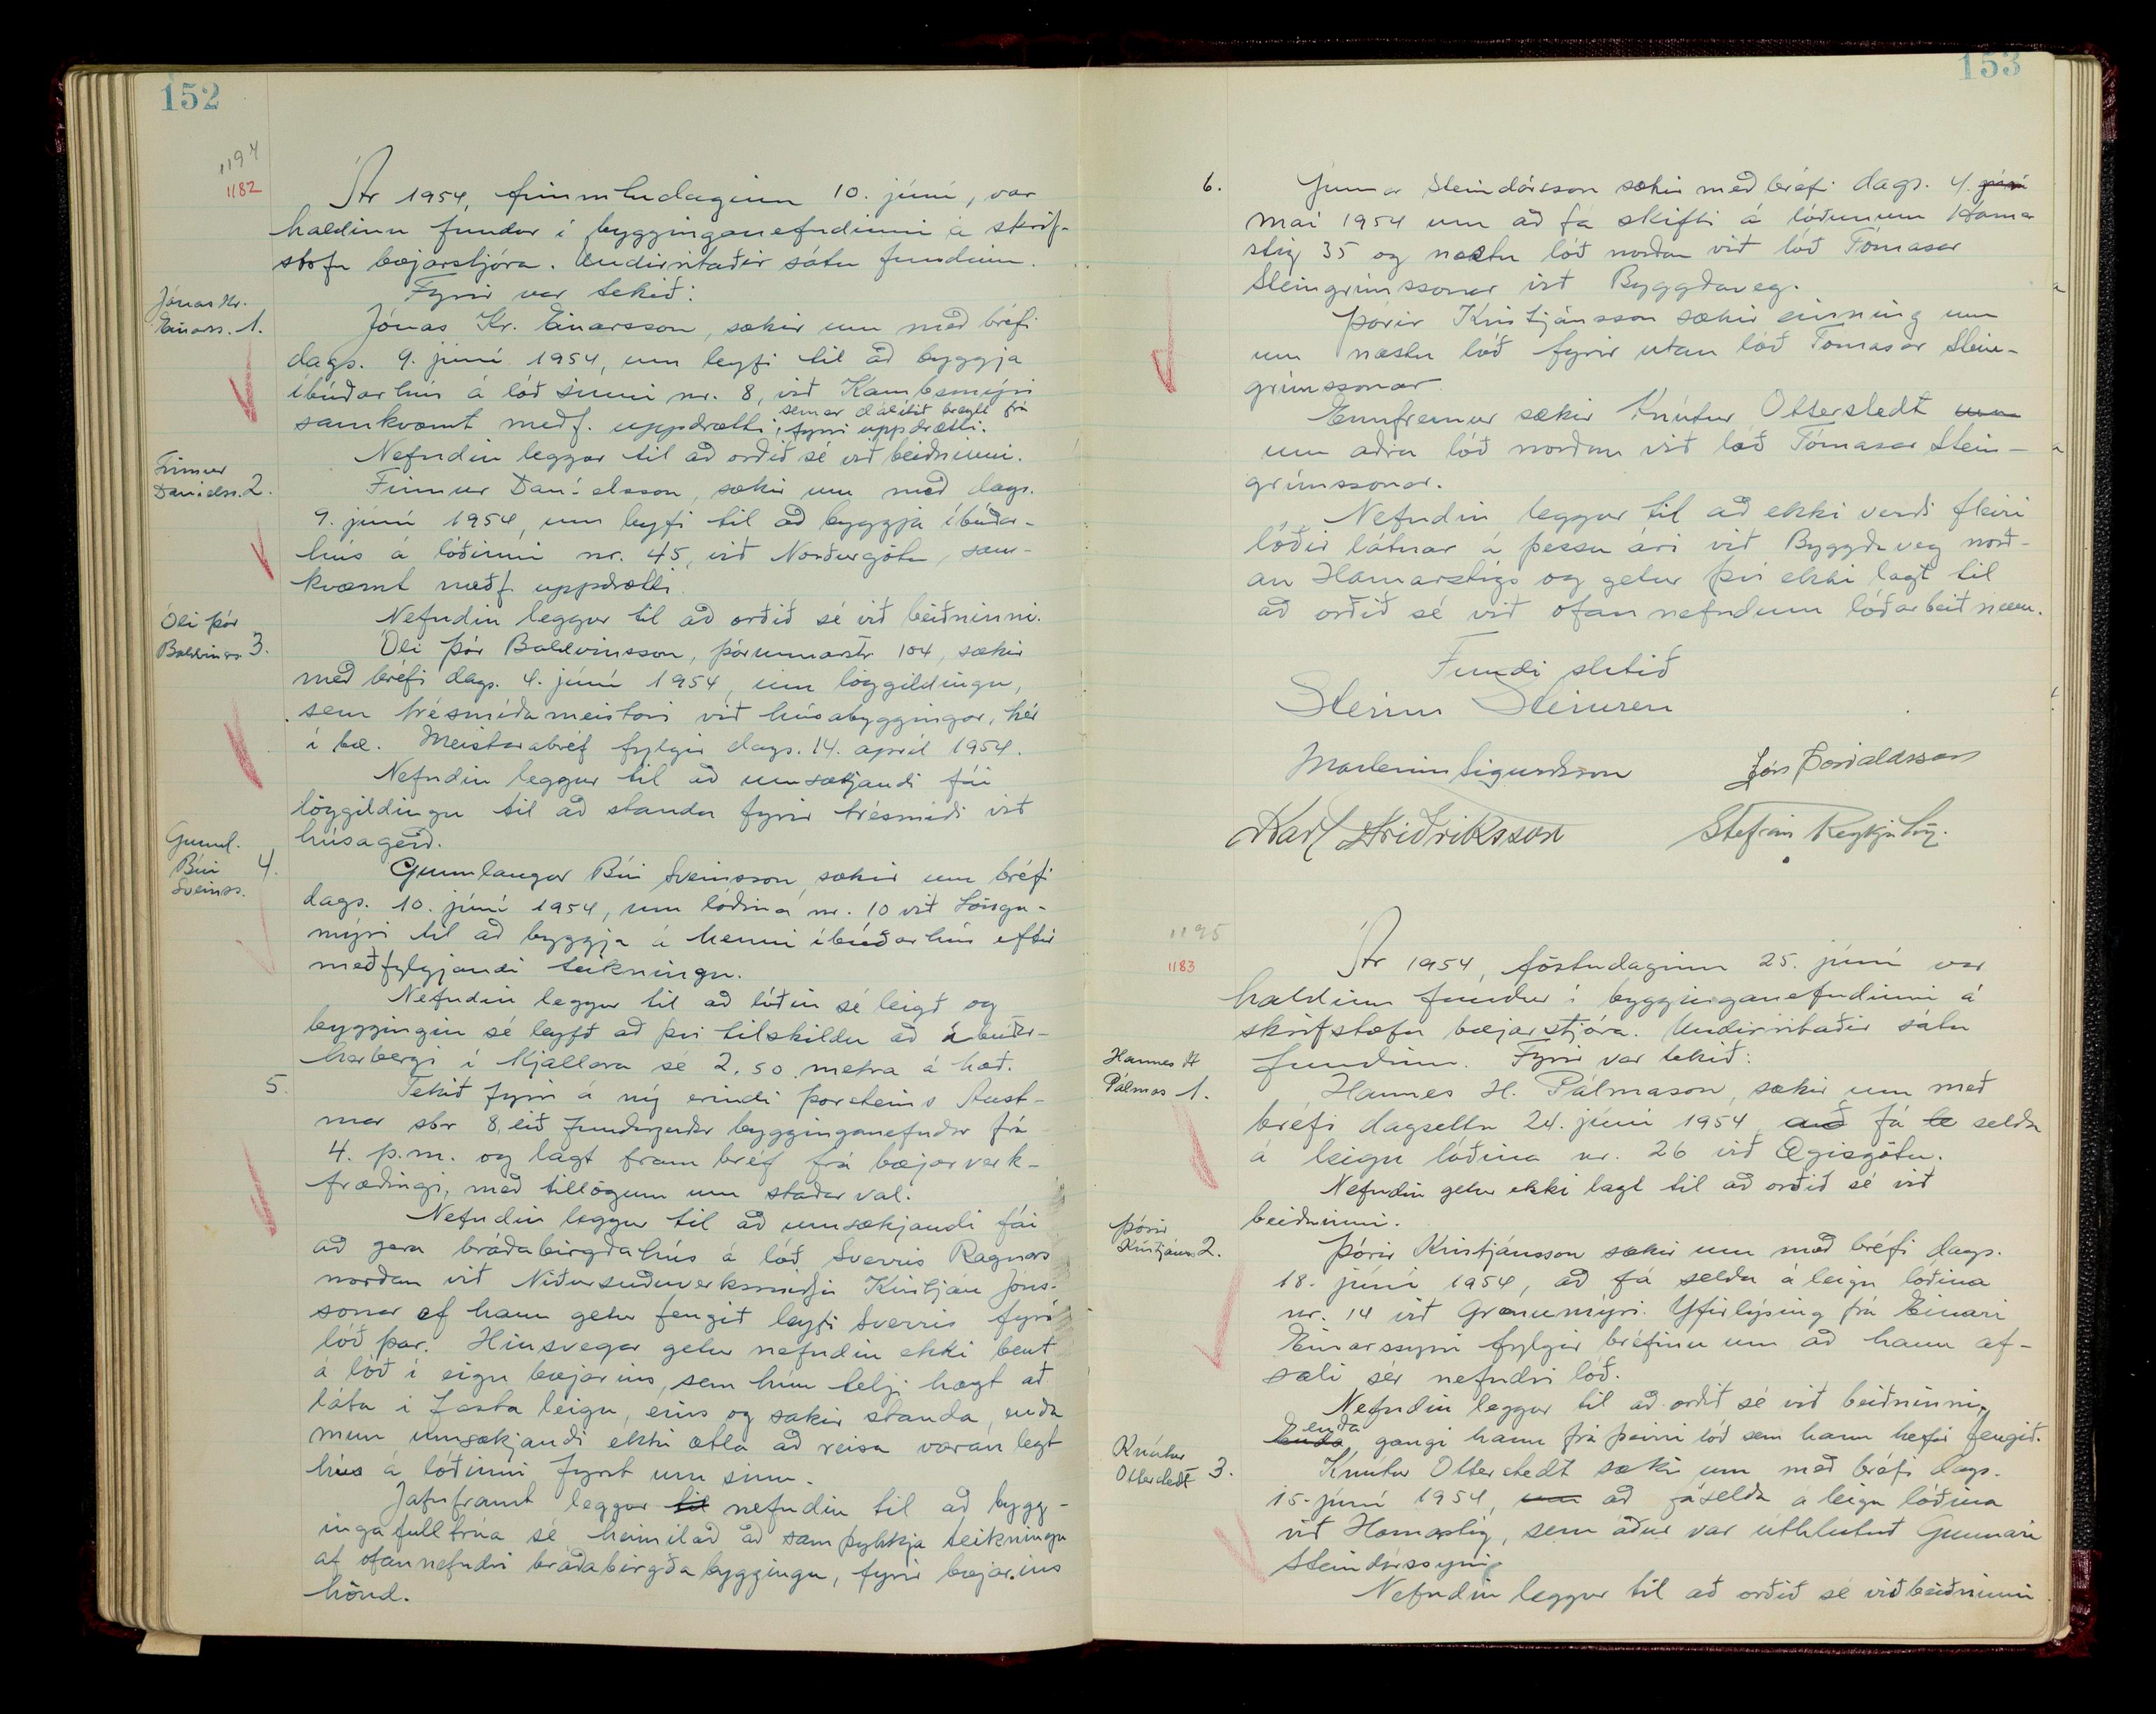 152
1194
1182
Ár 1954, fimmtudaginn 10. júní, var
haldinn fundur í bygginganefndinni á skrif-
stofu bæjarstjóra. Undirritaðir sátu fundinn.
Fyrir var tekið:
Jónas Kr.
Einarss. 1.
Jónas Kr. Einarsson, sækir um með bréfi
dags. 9. júní 1954, um leyfi til að byggja
íbúðarhús á lóð sinni nr. 8, við Kambsmýri
sem er dálítið breytt frá
samkvæmt meðf. uppdrætti, fyrri uppdrætti.
Nefndin leggur til að orðið sé við beiðninni.
Finnur
Daníelss. 2.
Finnur Daníelsson, sækir um með dags.
9. júní 1954, um leyfi til að byggja íbúðar-
hús á lóðinni nr. 45, við Norðurgötu, sam-
kvæmt meðf. uppdrætti.
Nefndin leggur til að orðið sé við beiðninni.
Óli Þór
Baldvinss. 3.
Óli Þór Baldvinsson, Þórunnarstr 104, sækir
með bréfi dags. 4. júní 1954, um löggildingu,
sem trésmíðameistari við húsabyggingar, hér
í bæ. Meistarabréf fylgir dags. 14. apríl 1954.
Nefndin leggur til að umsækjandi fái
löggildingu til að standa fyrir trésmíði við
húsagerð.
Gunnl.
Búi 4.
Sveinss.
Gunnlaugur Búi Sveinsson, sækir um bréfi
dags. 10. júní 1954, um lóðina nr. 10 við Löngu-
mýri til að byggja á henni íbúðarhús eftir
meðfylgjandi teikningu.
Nefndin leggur til að lóðin sé leigð og
byggingin sé leyfð að því tilskildu að íbúðar-
herbergi í kjallara sé 2.50 metra á hæð.
5.
Tekið fyrir á ný erindi Þorsteins Aust-
mar sbr 8. lið fundargerðar bygginganefndar frá
4. þ.m. og lagt fram bréf frá bæjarverk-
fræðingi, með tillögum um staðarval.
Nefndin leggur til að umsækjandi fái
að gera bráðabirgðahús á lóð Sverris Ragnars
norðan við Niðursuðuverksmiðju Kristján Jóns-
sonar ef hann getur fengið leyfi Sverris fyrir
lóð þar. Hinsvegar getur nefndin ekki bent
á lóð í eigu bæjarins, sem hún telji hægt að
láta í fasta leigu, eins og sakir standa, enda
mun umsækjandi ekki ætla að reisa varanlegt
hús á lóðinni fyrst um sinn.
Jafnframt leggur til nefndin til að bygg-
ingafulltrúa sé heimilað að samþykkja teikningu
af ofannefndri bráðabirgðabyggingu, fyrir bæjarins
hönd.
153
6.
Gunnar Steindórsson sækir með bréfi dags. 4. júní
maí 1954 um að fá skifti á lóðunum Hamar
stíg 35 og næstu lóð norðan við lóð Tómasar
Steingrímssonar við Byggðaveg.
Þórir Kristjánsson sækir einnig um
um næstu lóð fyrir utan lóð Tómasar Stein-
grímssonar.
Ennfremur sækir Knútur Otterstedt um
um aðra lóð norðan við lóð Tómasar Stein-
grímssonar.
Nefndin leggur til að ekki verði fleiri
lóðir látnar á þessu ári við Byggðaveg norð-
an Hamarstígs og getur því ekki lagt til
að orðið sé við ofannefndum lóðarbeiðnum.
Fundi slitið
Steinn Steinsen
Marteinn Sigurðsson Jón Þorvaldsson
Karl Friðriksson Stefán Reykjalín.
1195
1183
Ár 1954, föstudaginn 25. júní var
haldinn fundur í bygginganefndinni á
skrifstofu bæjarstjóra. Undirritaðir sátu
fundinn. Fyrir var tekið:
Hannes H
Pálmas 1.
Hannes H. Pálmason, sækir um með
bréfi dagsettu 24. júní 1954 að fá le selda
á leigu lóðina nr. 26 við Ægisgötu.
Nefndin getur ekki lagt til að orðið sé við
beiðninni.
Þórir
Kristjánss 2.
Þórir Kristjánsson sækir um með bréfi dags.
18. júní 1954, að fá selda á leigu lóðina
nr. 14 við Grænumýri. Yfirlýsing frá Einari
Einarssyni fylgir bréfinu um að hann af-
sali sér nefndri lóð.
Nefndin leggur til að orðið sé við beiðninni,
enda
Enda gangi hann frá þeirri lóð sem hann hefir fengið.
Knútur
Otterstedt 3.
Knutur Otterstedt sækir um með bréfi dags.
15. júní 1954, um að fá selda á leigu lóðina
við Hamarstíg, sem áður var úthlutuð Gunnari
Steindórssyni.
Nefndin leggur til að orðið sé við beiðninni